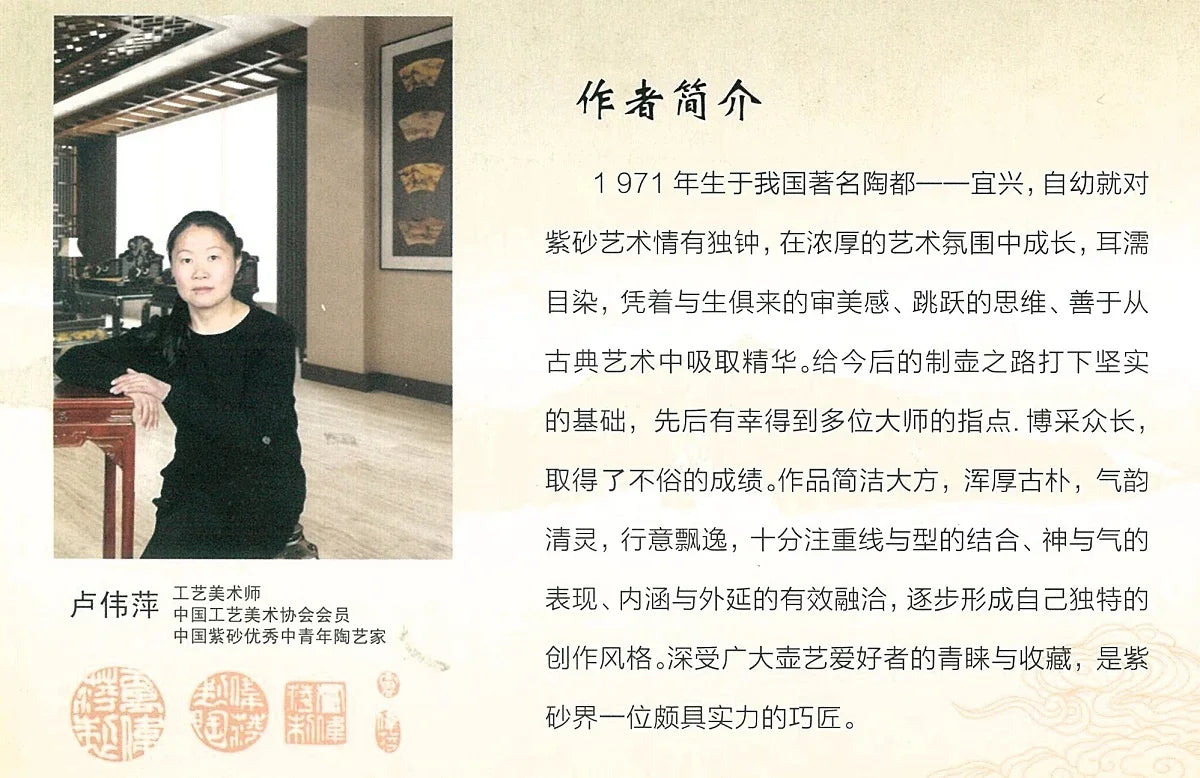 作者简介
1971年生于我国著名陶都——宜兴，自幼就对
紫砂艺术情有独钟，在浓厚的艺术氛围中成长，耳濡
目染，凭着与生俱来的审美感、跳跃的思维、善于从
古典艺术中吸取精华。给今后的制壶之路打下坚实
的基础，先后有幸得到多位大师的指点.博采众长，
取得了不俗的成绩。作品简洁大方，浑厚古朴，气韵
清灵，行意飘逸，十分注重线与型的结合、神与气的
表现、内涵与外延的有效融洽，逐步形成自己独特的
创作风格。深受广大壶艺爱好者的青睐与收藏，是紫
砂界一位颇具实力的巧匠。
卢伟萍
工艺美术师
中国工艺美术协会会员
中国紫砂优秀中青年陶艺家